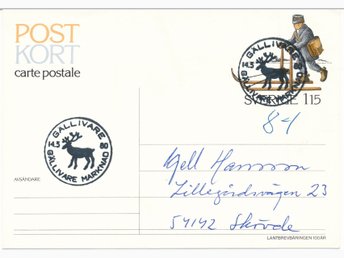 POST
KORT
carte postale
GÄLLIVARE
14.3 80
GÄLLIVARE MARKNAD
SVERIGE 115
84
GÄLLIVARE
14.3 80
GÄLLIVARE MARKNAD
Kjell Hansson
Lillegårdsvägen 23
54142 Skövde
AVSÄNDARE
LANTBREVBÄRINGEN 100 ÅR